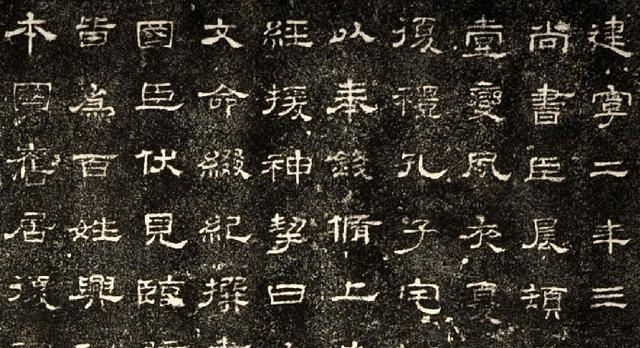 建寧二年三
尚書臣晨頓
壹變夙夜憂
復禮孔子宅
以奉錢脩上
經援神挈曰
文命綴紀撰
國臣伏見臨
皆為百姓興
本國舊居復